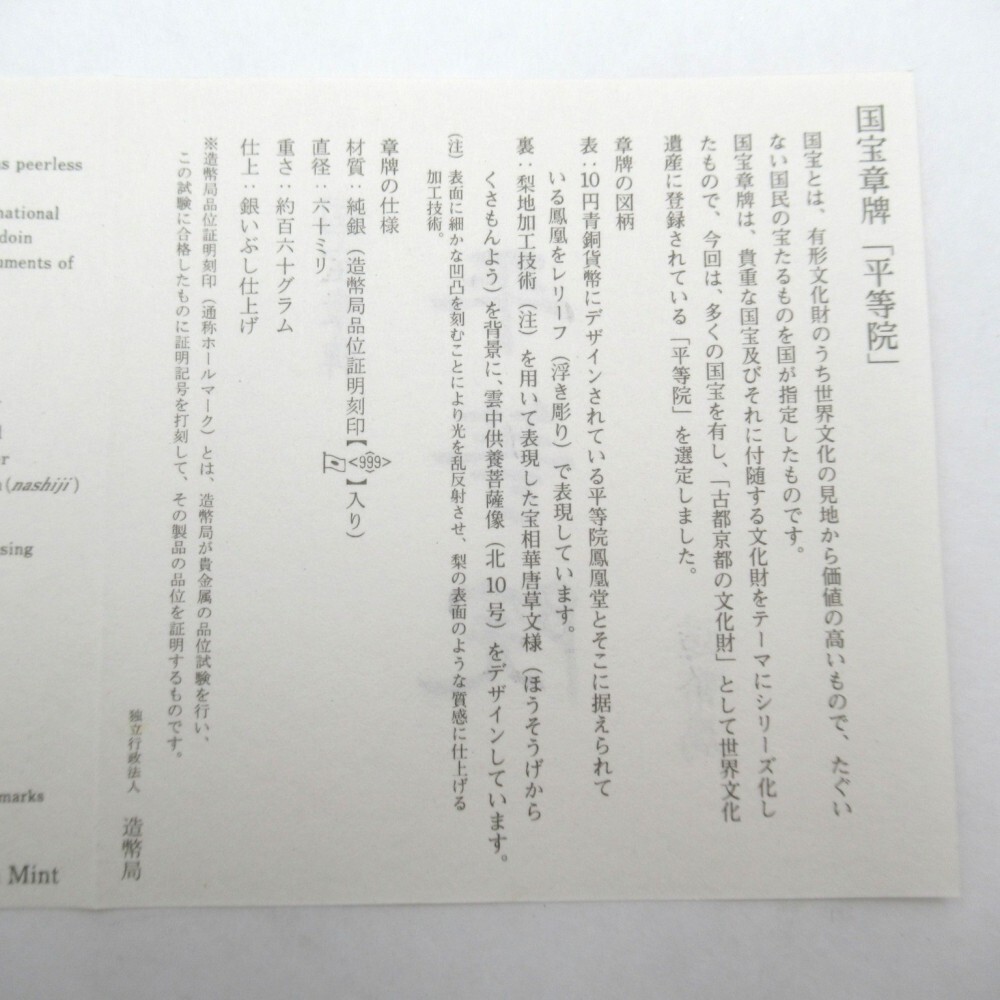 国宝章牌「平等院」
国宝とは、有形文化財のうち世界文化の見地から価値の高いもので、たぐい
ない国民の宝たるものを国が指定したものです。
国宝章牌は、貴重な国宝及びそれに付随する文化財をテーマにシリーズ化し
たもので、今回は、多くの国宝を有し、「古都京都の文化財」として世界文化
遺産に登録されている「平等院」を選定しました。
章牌の図柄
表：10円青銅貨幣にデザインされている平等院鳳凰堂とそこに据えられて
いる鳳凰をレリーフ（浮き彫り）で表現しています。
裏：梨地加工技術（注）を用いて表現した宝相華唐草文様（ほうそうげから
くさもんよう）を背景に、雲中供養菩薩像（北10号）をデザインしています。
（注）表面に細かな凹凸を刻むことにより光を乱反射させ、梨の表面のような質感に仕上げる
加工技術。
章牌の仕様
材質：純銀（造幣局品位証明刻印【<999>】入り）
直径：六十ミリ
重さ：約百六十グラム
仕上：銀いぶし仕上げ
※造幣局品位証明刻印（通称ホールマーク）とは、造幣局が貴金属の品位試験を行い、
この試験に合格したものに証明記号を打刻して、その製品の品位を証明するものです。
独立行政法人 造幣局
s peerless
national
doin
uments of
r
(nashiji)
sing
marks
Mint